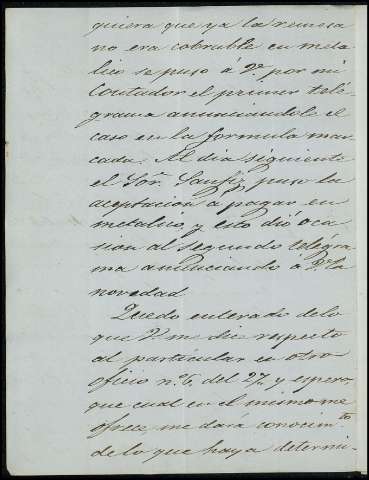 quiera que ya la remesa
no era cobrable en meta-
lico se puso á V. por mi
Contador el primer telé-
grama anunciandole el
caso en la formula mar-
cada. Al dia siguiente
el Sor. Saufiz puso la
aceptacion a pagar en
metalico, y esto dió oca
sion al segundo telégra-
ma anunciando á V. la
novedad
Quedo enterado de lo
que V. me dice respecto
al particular en otro
oficio n.º 6. del 27, y espero,
que cual en el mismo me
ofrece, me dará conocim.to
de lo que haya determi-